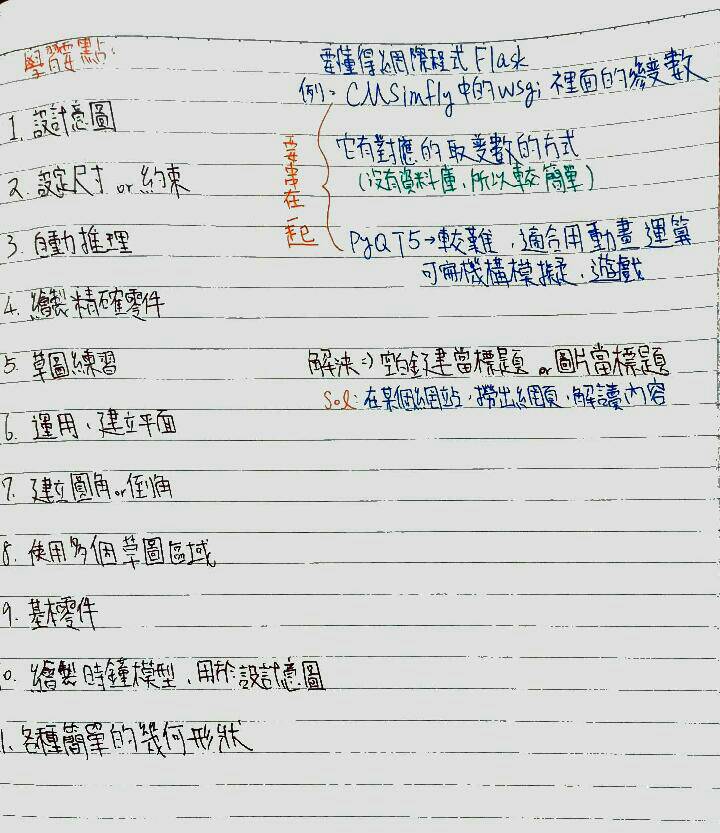 學習要點:
1. 設計意圖
2. 設定尺寸 or 約束
3. 自動推理
4. 繪製精確零件
5. 草圖練習
6. 運用、建立平面
7. 建立圓角 or 倒角
8. 使用多個草圖區域
9. 基本零件
0. 繪製時鐘模型、用於設計意圖
1. 各種簡單的幾何形狀
要懂得網際程式 Flask
例:CMSimfly 中的 wsgi 裡面的變數
要串在一起
它有對應的取變數的方式
(沒有資料庫,所以較簡單)
PyQT5→較難,適合用動畫運算
可無機構模擬、遊戲
解決=> 空白鍵建當標題 or 圖片當標題
Sol: 在某個網站,撈出網頁,解讀內容